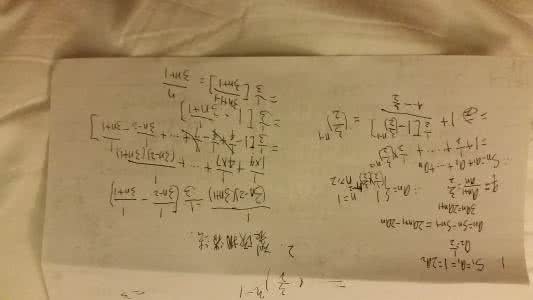 (3/2)^{n-1}
1. S₁=a₁=1=2a₂
a₂=1/2
aₙ=Sₙ-Sₙ₋₁=2aₙ₊₁-2aₙ
3aₙ=2aₙ₊₁
q=aₙ₊₁/aₙ=3/2 ∴aₙ={1 n=1
1/2(3/2)^{n-2} n≥2
∴Sₙ=a₁+a₂+…+aₙ
=1+1/2+…+1/2(3/2)^{n-2}
=1+1/2[1-(3/2)^{n-1}]/(1-3/2)=(3/2)^{n-1}
2 裂项相消法:
1/((3n-2)(3n+1))=1/3[1/(3n-2)-1/(3n+1)]
1/(1×4)+1/(4×7)+…+1/((3n-2)(3n+1))
=1/3[1-1/4+1/4-1/7+…+1/(3n-2)-1/(3n+1)]
=1/3[1-1/(3n+1)]
=1/3[3n/(3n+1)]=n/(3n+1)